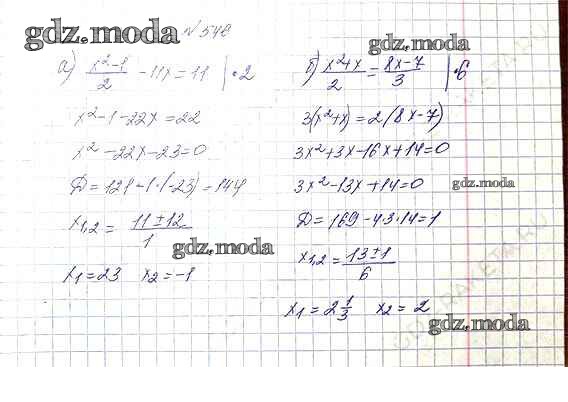 gdz.moda № 548
а) (x²-1)/2 - 11x = 11 |·2
x²-1-22x=22
x²-22x-23=0
D=121-1·(-23)=144
x₁,₂ = (11±12)/1
gdz.moda
x₁=23 x₂=-1
gdz.moda
б) (x²+x)/2 = (8x-7)/3 |·6
3(x²+x)=2(8x-7)
3x²+3x-16x+14=0
3x²-13x+14=0
gdz.moda
D=169-4·3·14=1
x₁,₂ = (13±1)/6
x₁=2 1/3 x₂=2
gdz.moda